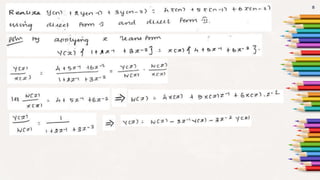 Realize y(n) + 2y(n-1) + 3y(n-2) = 4x(n) + 5x(n-1) + 6x(n-2)
using direct form I and direct form II.
Soln By applying z transform
Y(z) {1+2z⁻¹ + 3z⁻²} = X(z) {4+5z⁻¹+6z⁻²}.
Y(z)/X(z) = 4+5z⁻¹+6z⁻²/1+2z⁻¹+3z⁻² = Y(z)/W(z) · W(z)/X(z)
let W(z)/X(z) = 4+5z⁻¹+6z⁻² ⇒ W(z) = 4X(z) + 5X(z)z⁻¹ + 6X(z).z⁻²
Y(z)/W(z) = 1/1+2z⁻¹+3z⁻² ⇒ Y(z) = W(z) - 2z⁻¹Y(z) - 3z⁻² Y(z)